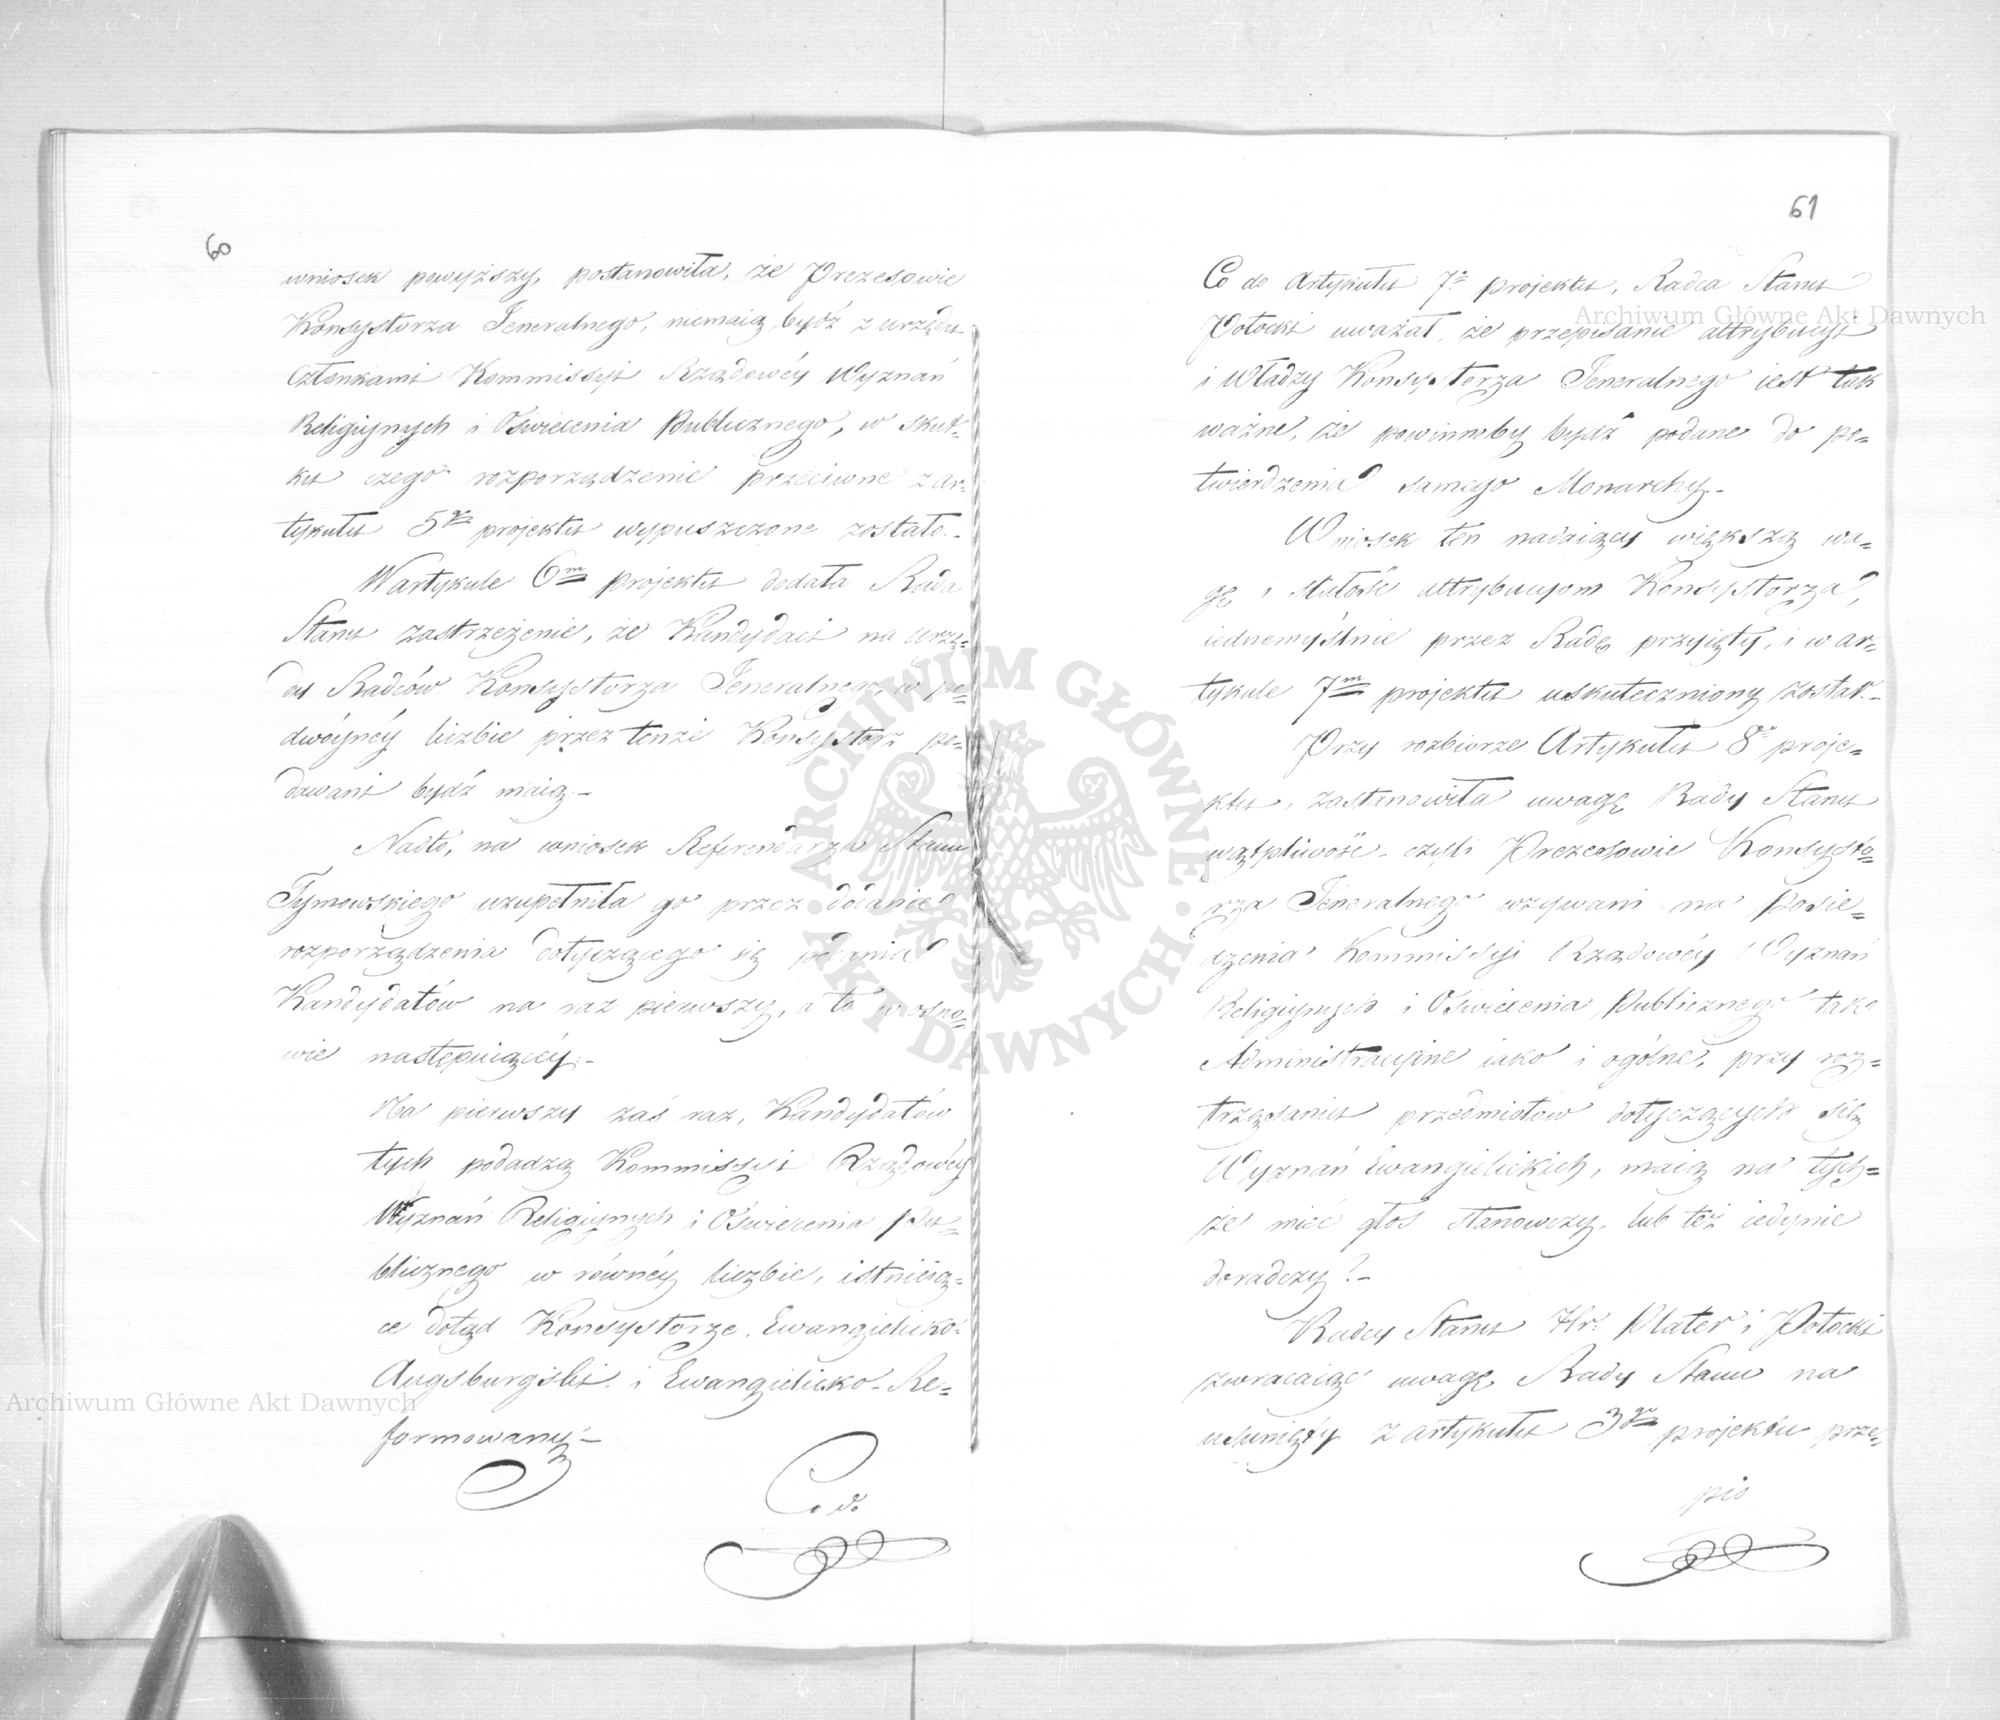 60
wniosek powyższy, postanowiła, że Prezesowie
Konsystorza Jeneralnego, niemaią bydź z urzędu
Członkami Kommissyi Rządowéy Wyznań
Religiynych i Oświecenia Publicznego, w skut=
ku czego rozporządzenie przeciwne z ar=
tykułu 5go projektu wypuszczone zostało.-
W artykule 6m projektu dodała Rada
Stanu zastrzeżenie, że Kandydaci na urzę=
dy Radców Konsystorza Jeneralnego, w po=
dwóynéy liczbie przez tenże Konsystorz po=
dawani bydź maią.-
Nadto, na wniosek Referendarza Stanu
Tymowskiego uzupełniła go przez dodanie
rozporządzenia dotyczącego się podania
Kandydatów na raz pierwszy, a to w osno=
wie następuiącéy.-
Na pierwszy zaś raz, Kandydatów
tych podadzą Kommissyi Rządowéy
Wyznań Religiynych i Oświecenia Pu=
blicznego w równéy liczbie, istnieią=
ce dotąd Konsystorze, Ewangielicko-
Augsburgski i Ewangielicko-Re=
formowany.-
Co do
61
Co do Artykułu 7o projektu, Radca Stanu
Potocki uważał, że przepisanie attrybucyi
i Władzy Konsystorza Jeneralnego iest tak
ważne, że powinnoby bydź podane do po=
twierdzenia samego Monarchy.-
Wniosek ten nadaiący większą wa=
gę i stałość attrybucyom Konsystorza,
iednomyślnie przez Radę przyięty, i w ar=
tykule 7m projektu uskuteczniony został.-
Przy rozbiorze Artykułu 8o proje=
ktu, zastanowiła uwagę Rady Stanu
wątpliwość - czyli Prezesowie Konsysto=
rza Jeneralnego wzywani na Posie=
dzenia Kommissyi Rządowéy Wyznań
Religiynych i Oświecenia Publicznego tak
Administracyine iako i ogólne, przy roz=
trząsaniu przedmiotów dotyczących się
Wyznań Ewangielickich, maią na tych=
że mieć głos stanowczy, lub też iedynie
doradczy?-
Radcy Stanu Hr. Plater i Potocki
zwracaiąc uwagę Rady Stanu na
usunięty z artykułu 3go projektu prze=
pis
Archiwum Główne Akt Dawnych
Archiwum Główne Akt Dawnych
ARCHIWUM GŁÓWNE · AKT DAWNYCH ·